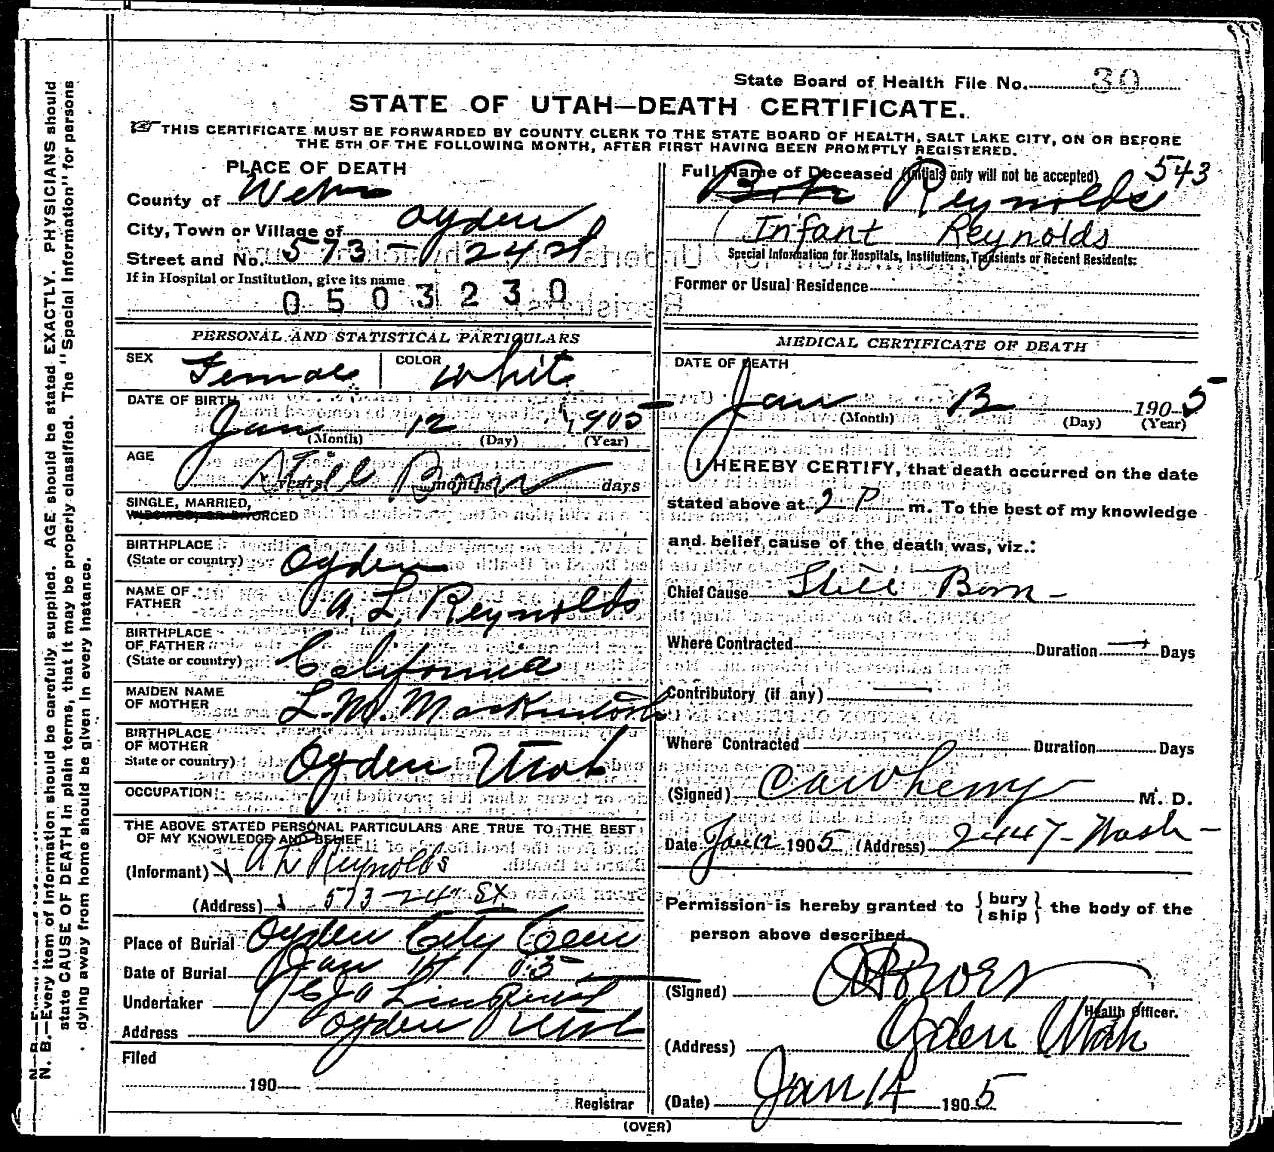 State Board of Health File No. 30
STATE OF UTAH—DEATH CERTIFICATE.
THIS CERTIFICATE MUST BE FORWARDED BY COUNTY CLERK TO THE STATE BOARD OF HEALTH, SALT LAKE CITY, ON OR BEFORE
THE 5TH OF THE FOLLOWING MONTH, AFTER FIRST HAVING BEEN PROMPTLY REGISTERED.
PLACE OF DEATH
County of Weber
City, Town or Village of Ogden
Street and No. 573 - 24 St
If in Hospital or Institution, give its name
0503230
Full Name of Deceased (Initials only will not be accepted) 543
Reynolds
Infant Reynolds
Special Information for Hospitals, Institutions, Transients or Recent Residents:
Former or Usual Residence
PERSONAL AND STATISTICAL PARTICULARS
SEX Female COLOR White
DATE OF BIRTH
Jan 12 1905
(Month) (Day) (Year)
AGE Still Born
years months days
SINGLE, MARRIED,
WIDOWED, OR DIVORCED
BIRTHPLACE
(State or country) Ogden
NAME OF
FATHER A. L. Reynolds
BIRTHPLACE
OF FATHER
(State or country) California
MAIDEN NAME
OF MOTHER L. M. Mackintosh
BIRTHPLACE
OF MOTHER
State or country) Ogden Utah
OCCUPATION
THE ABOVE STATED PERSONAL PARTICULARS ARE TRUE TO THE BEST
OF MY KNOWLEDGE AND BELIEF
(Informant) A L Reynolds
(Address) 573 - 24" St
Place of Burial Ogden City Cem
Date of Burial Jan
Undertaker Lindquist
Address Ogden Utah
Filed
190
Registrar
MEDICAL CERTIFICATE OF DEATH
DATE OF DEATH
Jan 12 1905
(Month) (Day) (Year)
I HEREBY CERTIFY, that death occurred on the date
stated above at 2 P m. To the best of my knowledge
and belief cause of the death was, viz.:
Chief Cause Still Born -
Where Contracted Duration — Days
Contributory (if any) —
Where Contracted Duration Days
(Signed) M. D.
Date Jan 12 1905 (Address) 2447 - Wash -
Permission is hereby granted to { bury
ship } the body of the
person above described
(Signed)
Health Officer.
(Address) Ogden Utah
(Date) Jan 14 1905
(OVER)
N. B.—Every item of information should be carefully supplied. AGE should be stated EXACTLY. PHYSICIANS should
state CAUSE OF DEATH in plain terms, that it may be properly classified. The "Special Information" for persons
dying away from home should be given in every instance.